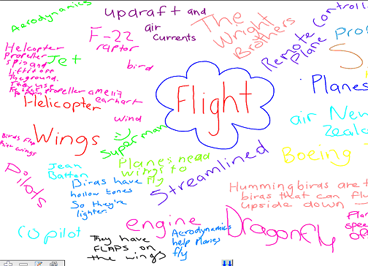 Aerodynamics
uparaft and
air
currents
The
Wright
Brothers
Remote Control
Plane
Pro
S
F-22
raptor
bird
Jet
Helicopter
propeller
Flight
Planes
amelia
earhart
Helicopter
wind
air New
Zeala
Superman
Wings
Birds Flap
Air wings
Pilots
Jean
Batten
Planes need
wings to
fly
Streamlined
Boeing 7
Birds have
hollow bones
So they're
lighter.
Hummingbirds are t
birds that can fl
upside down
engine
Dragonfly
Copilot
They have
FLAPS on
the wings
Aerodynamics
help planes
fly